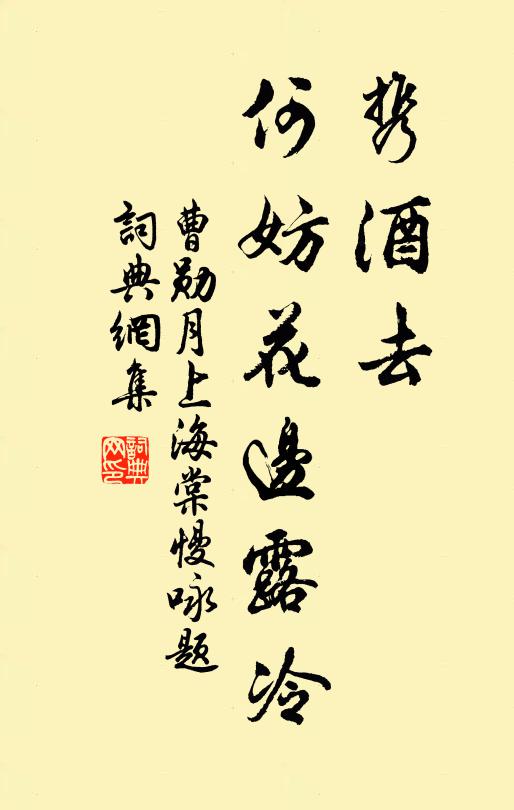 携酒去
何妨花邊露冷
曹勋月上海棠慢咏題
詞典網集
詞典
网印